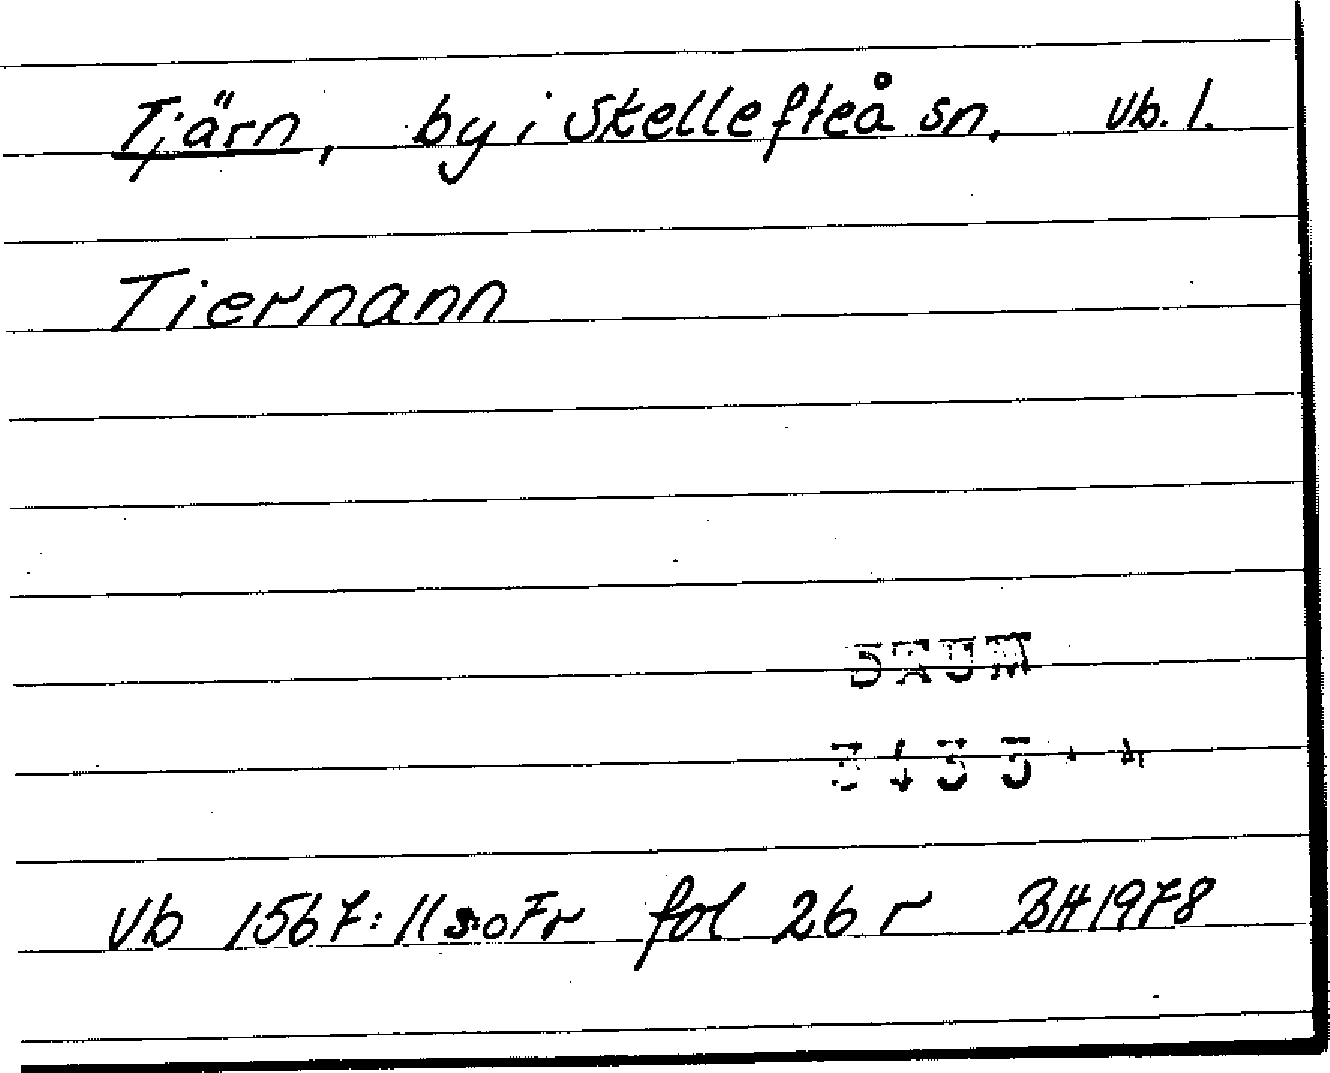 Tjärn, by i Skellefteå sn. Vb. l.
Tiernann
Vb 1567: 11 fol 26 r BH 1978